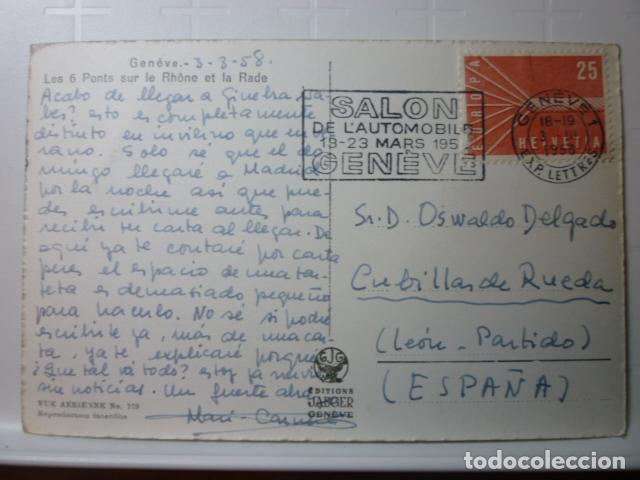 Genéve.- 3-3-58.
Les 6 Ponts sur le Rhône et la Rade
Acabo de llegar a Ginebra ¿sa-
bes? esto es completamente
distinto en invierno que en ve-
rano. Solo sé que el do-
mingo llegaré a Madrid
por la noche así que pue-
des escribirme antes para
recibir tu carta al llegar. De
aquí ya te contaré por carta
pues el espacio de una tar-
jeta es demasiado pequeño
para hacerlo. No sé si podré
escribirte ya, más de una car-
ta, ya te explicaré porque
¿Que tal va todo? estoy ya
sin noticias. Un fuerte abra
Mari-Carmen
VUE AERIENNE No. 779
Reproduction interdite
EJG
EDITIONS
JAEGER
GENÈVE
SALON
DE L'AUTOMOBILE
13-23 MARS 195
GENÈVE
EUROPA
25
HELVETIA
GENÈVE 1
18-19
EXP. LETTRES
Sr. D. Oswaldo Delgado
Cubillas de Rueda
(León-Partido)
(ESPAÑA)
todocoleccion.net